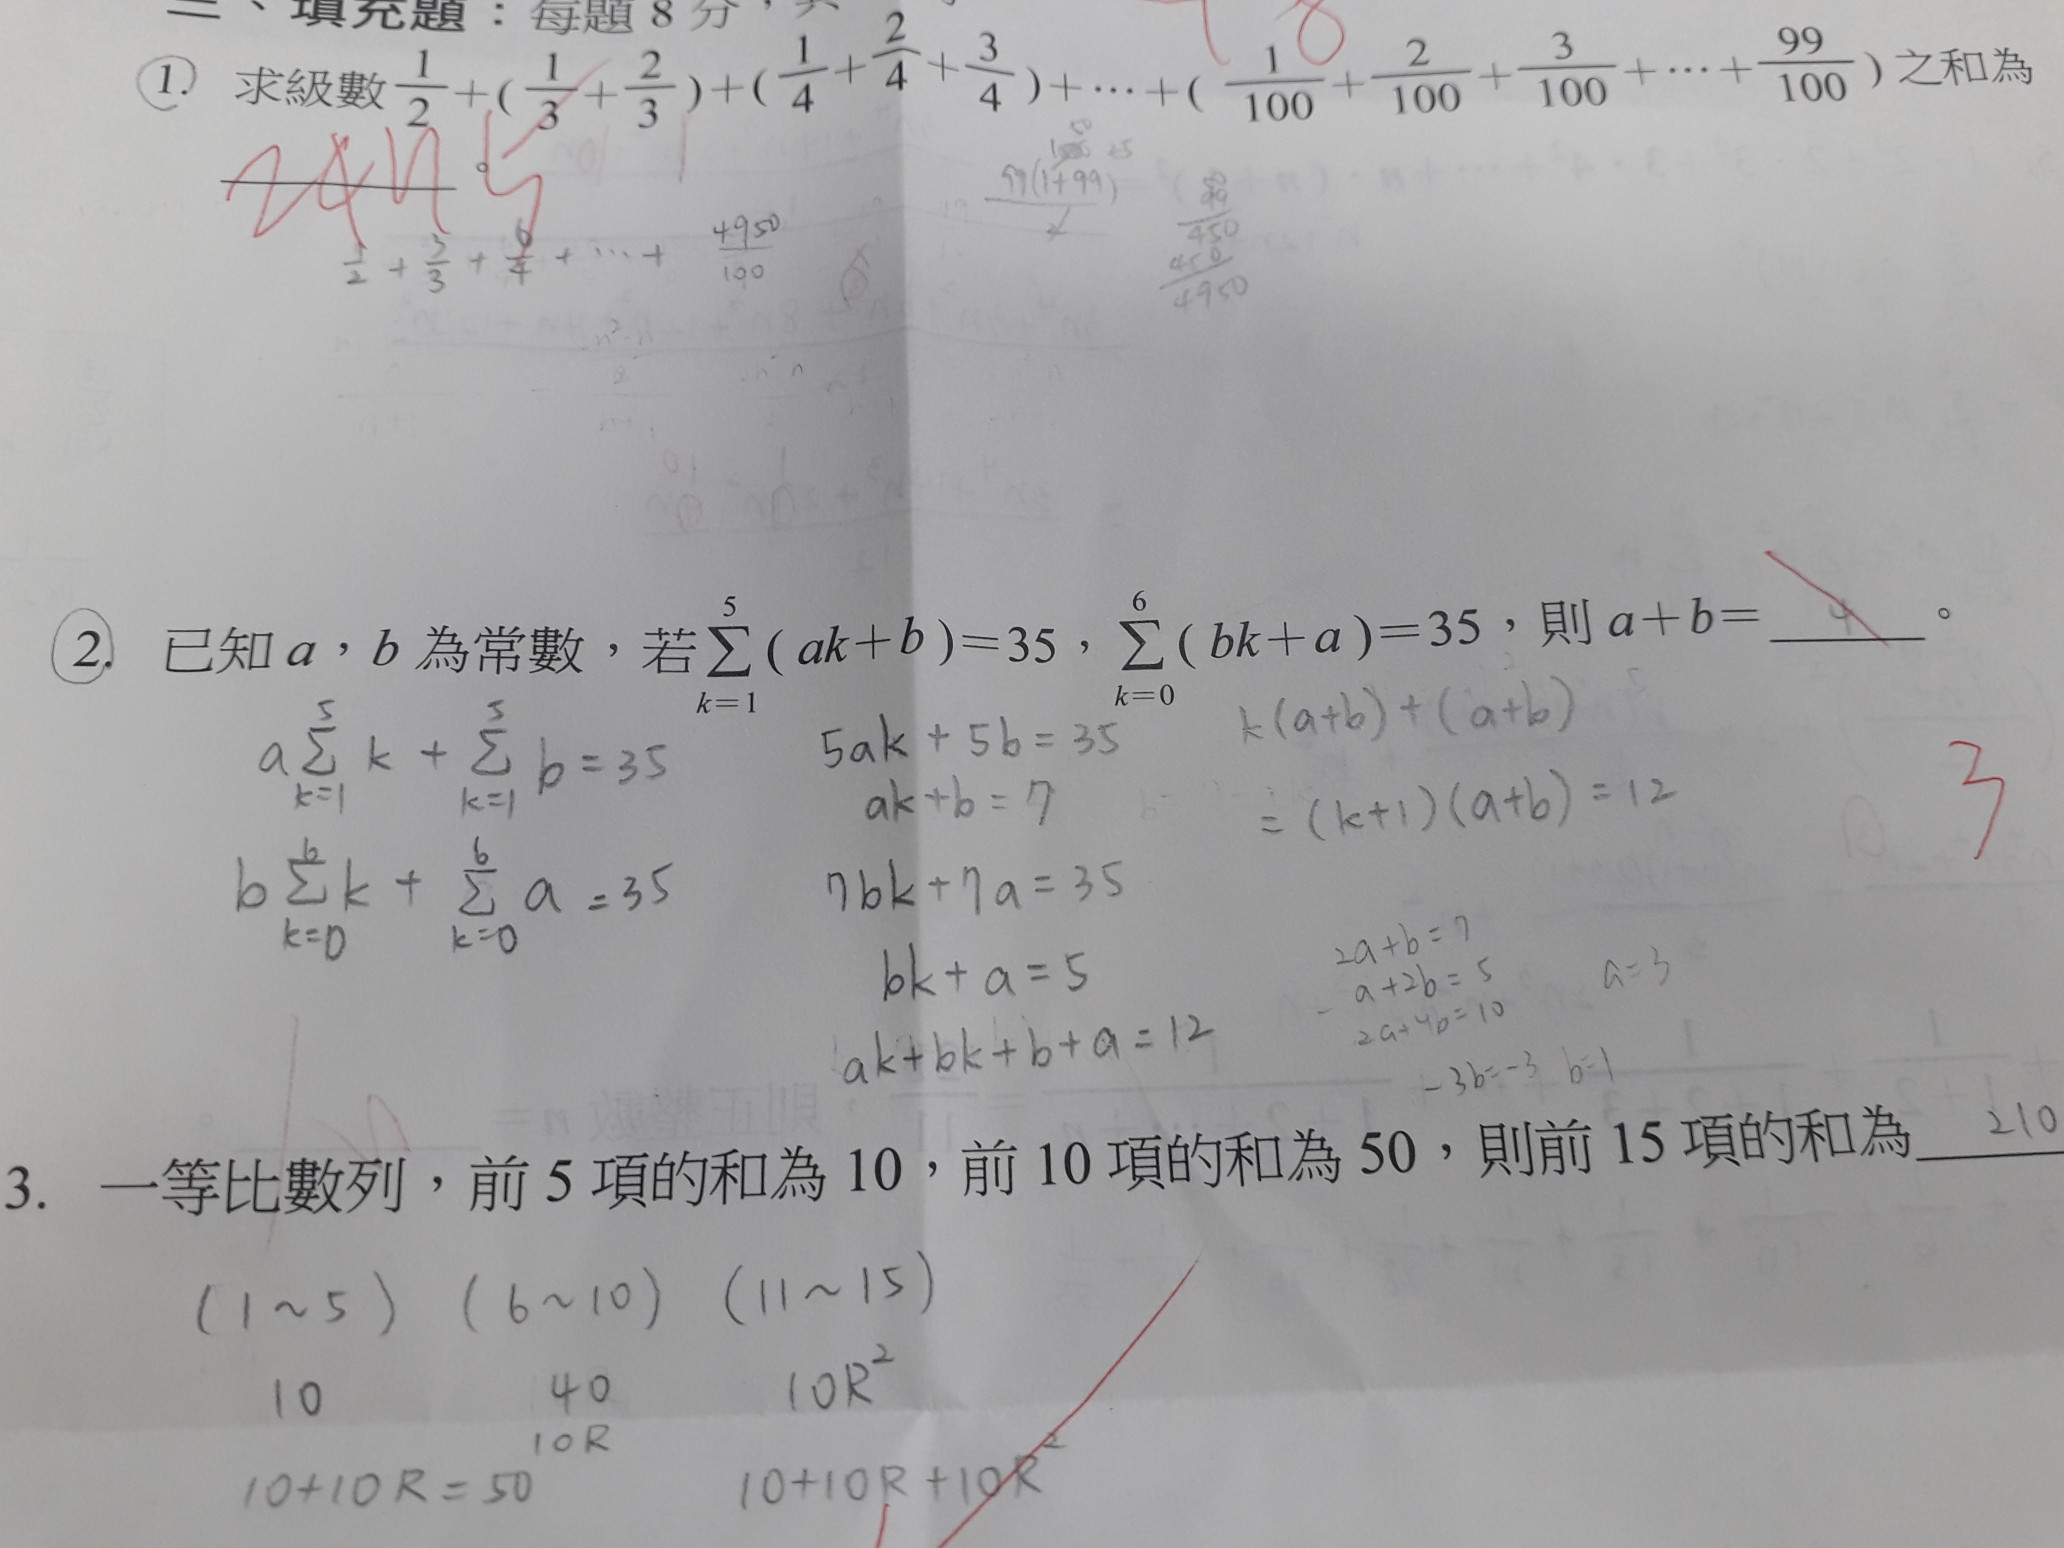 三、填充題：每題 8 分，共
48
1. 求級數 1/2 + ( 1/3 + 2/3 ) + ( 1/4 + 2/4 + 3/4 ) + ⋯ + ( 1/100 + 2/100 + 3/100 + ⋯ + 99/100 ) 之和為
2475 。
1/2 + 3/3 + 6/4 + ⋯ + 4950/100
99(1+99)/2
50 25
450
450
4950
2. 已知 a，b 為常數，若 5∑k=1 ( ak+b )=35，6∑k=0 ( bk+a )=35，則 a+b= 4 。
a 5∑k=1 k + 5∑k=1 b = 35
5ak + 5b = 35
k(a+b) + (a+b)
ak+b = 7
= (k+1)(a+b) = 12
3
b 6∑k=0 k + 6∑k=0 a = 35
7bk + 7a = 35
bk + a = 5
ak+bk+b+a = 12
2a+b=7
a+2b=5
a=3
- 2a+4b=10
-3b=-3 b=1
3. 一等比數列，前 5 項的和為 10，前 10 項的和為 50，則前 15 項的和為 210
(1~5) (6~10) (11~15)
10 40 10R²
10R
10+10R=50 10+10R+10R²